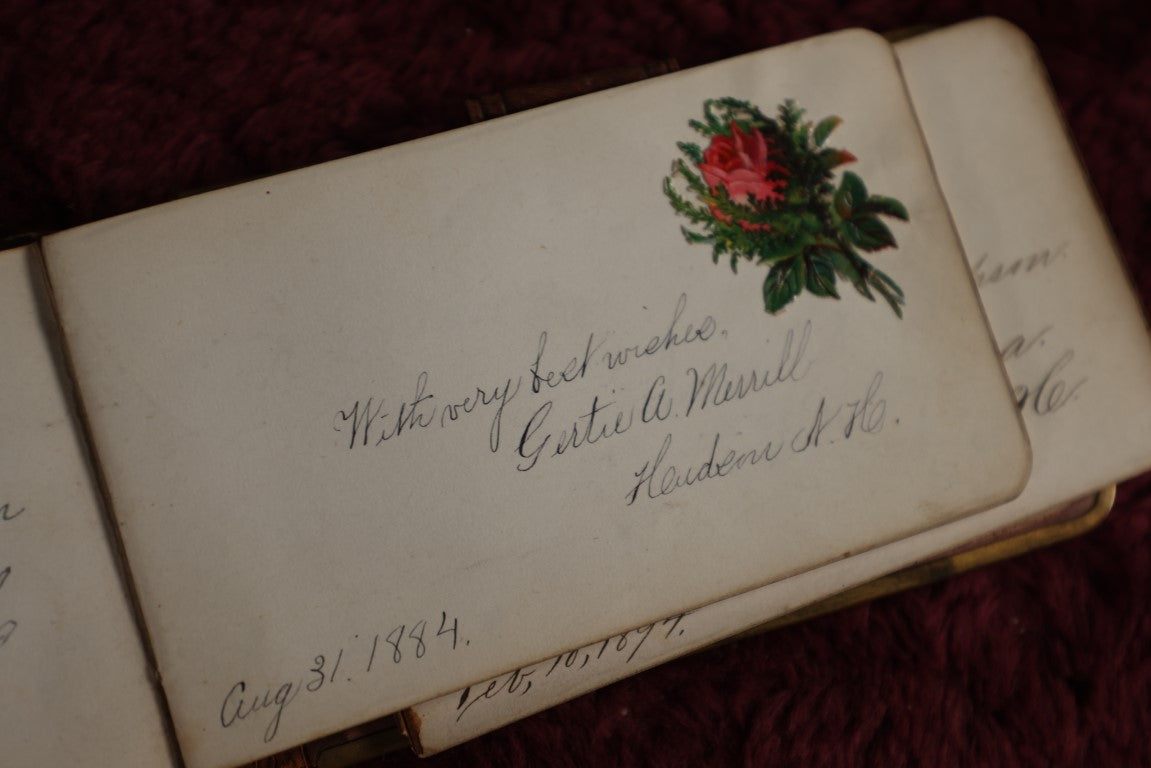 With very best wishes.
Gertie A. Merrill
Hudson N. H.
Aug 31. 1884.
Feb, 10, 1894.